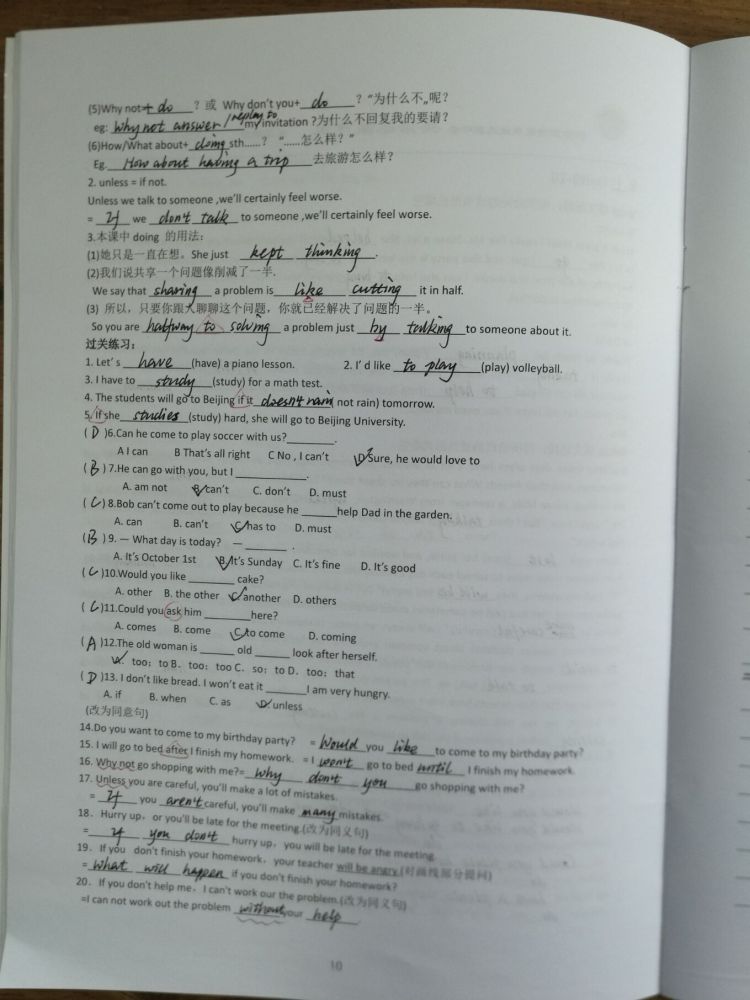 (5)Why not+ do ? 或 Why don't you+ do ? "为什么不„呢?
eg: Why not answer / replay to my invitation ?为什么不回复我的要请?
(6)How/What about+ doing sth......? "......怎么样?"
Eg. How about having a trip 去旅游怎么样?
2. unless = if not.
Unless we talk to someone ,we'll certainly feel worse.
= If we don't talk to someone ,we'll certainly feel worse.
3.本课中 doing 的用法:
(1)她只是一直在想。She just kept thinking.
(2)我们说共享一个问题像削减了一半.
We say that sharing a problem is like cutting it in half.
(3) 所以,只要你跟人聊聊这个问题,你就已经解决了问题的一半。
So you are halfway to solving a problem just by talking to someone about it.
过关练习:
1. Let' s have (have) a piano lesson. 2. I' d like to play (play) volleyball.
3. I have to study (study) for a math test.
4. The students will go to Beijing if it doesn't rain( not rain) tomorrow.
5. If she studies (study) hard, she will go to Beijing University.
( D )6.Can he come to play soccer with us?________.
A I can B That's all right C No , I can't D Sure, he would love to
( B )7.He can go with you, but I ____________.
A. am not B. can't C. don't D. must
( C )8.Bob can't come out to play because he ______help Dad in the garden.
A. can B. can't C. has to D. must
( B )9. — What day is today? — _______ .
A. It's October 1st B. It's Sunday C. It's fine D. It's good
( C )10.Would you like ________ cake?
A. other B. the other C. another D. others
( C )11.Could you ask him ________here?
A. comes B. come C. to come D. coming
( A )12.The old woman is ______ old ______ look after herself.
A. too; to B. too; too C. so; to D. too; that
( D )13. I don't like bread. I won't eat it _______I am very hungry.
A. if B. when C. as D. unless
(改为同意句)
14.Do you want to come to my birthday party? = Would you like to come to my birthday party?
15. I will go to bed after I finish my homework. = I won't go to bed until I finish my homework.
16. Why not go shopping with me?= Why don't you go shopping with me?
17. Unless you are careful, you'll make a lot of mistakes.
= If you aren't careful, you'll make many mistakes.
18. Hurry up, or you'll be late for the meeting.(改为同义句)
= If you don't hurry up, you will be late for the meeting.
19. If you don't finish your homework, your teacher will be angry.(对画线部分提问)
= What will happen if you don't finish your homework?
20. If you don't help me, I can't work our the problem.(改为同义句)
=I can not work out the problem without your help.
10